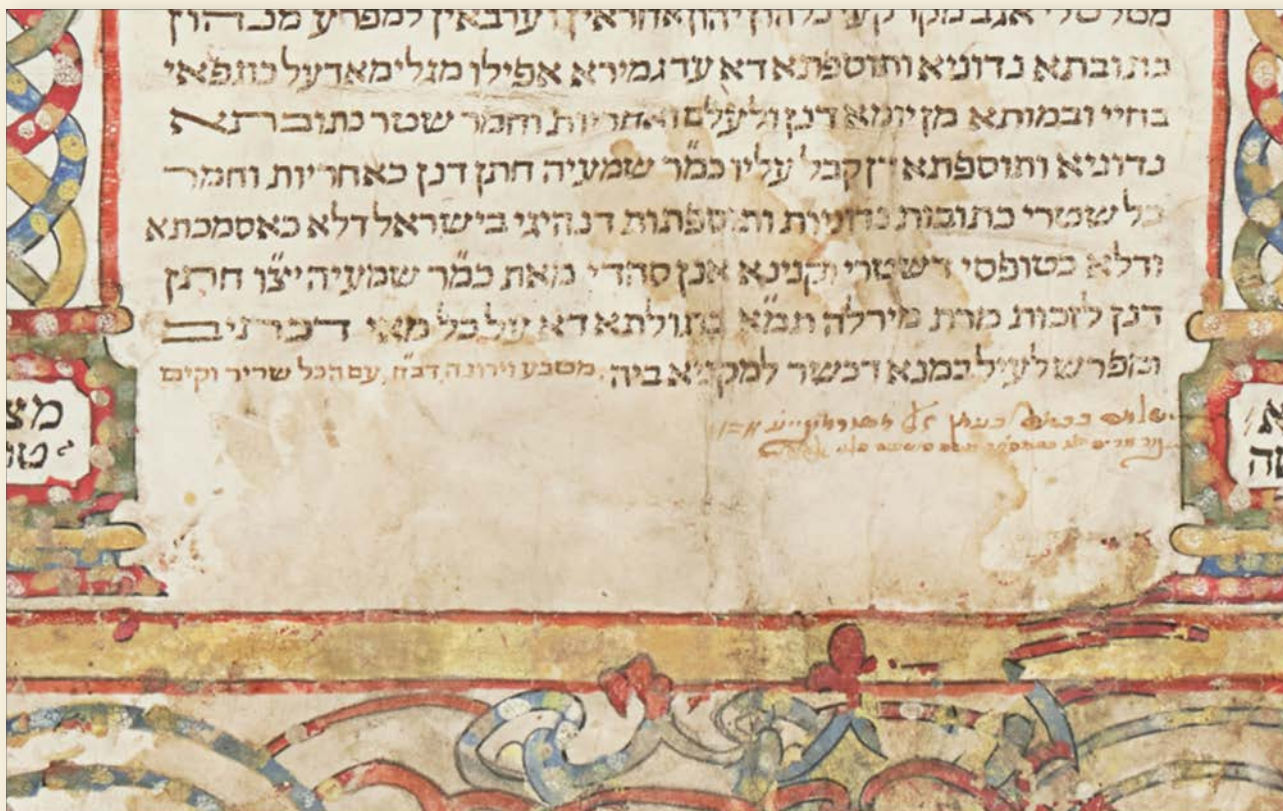 מטלטלי אגב מקרקעי כלהון יהון אחראין וערבאין למפרע מנהון
כתובתא נדוניא ותוספתא דא עד גמירא אפילו מגלימא דעל כתפאי
בחיי ובמותא מן יומא דנן ולעלם ואחריות וחמר שטר כתובתא
נדוניא ותוספתא דן קבל עליו כמ״ר שמעיה חתן דנן כאחריות וחמר
כל שטרי כתובות נדוניות ותוספתות דנהיגי בישראל דלא כאסמכתא
ודלא כטופסי דשטרי וקנינא אנן סהדי מאת כמ״ר שמעיה יצ״ו חתן
דנן לזכות מרת מירלה תמ״א בתולתא דא על כל מאי דכתיב
ומפרש לעיל במנא דכשר למקניא ביה, מטבע וירונה, דב״ח, עם הכל שריר וקים
מצ
טו
א
סה